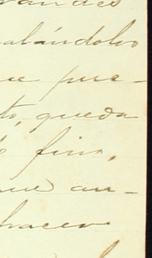 randes
alándolos
ue pue-
to, queda
fino,
ue au-
hacer